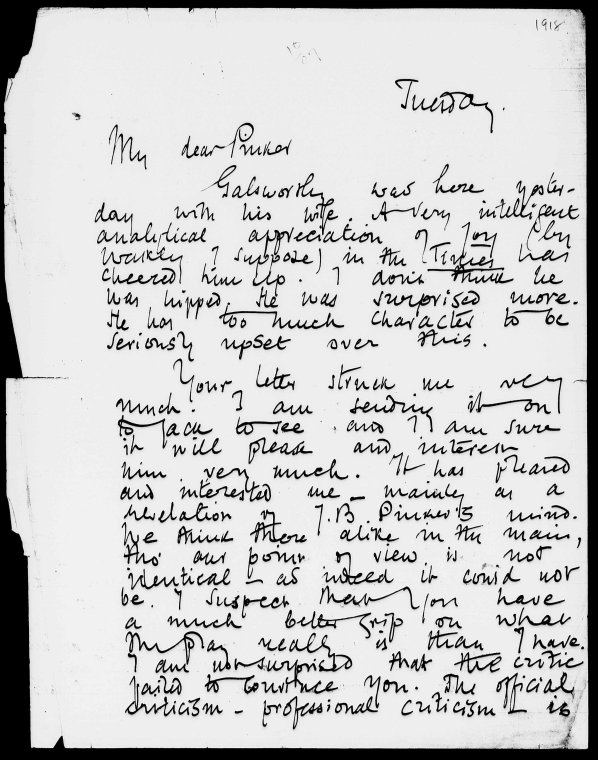 1918
Tuesday.
My dear Pinker
Galsworthy was here yester-
day with his wife. A very intelligent
analytical appreciation of Joy (by
Walkley I suppose) in the Times has
cheered him up. I don't think he
was hipped. He was surprised more.
He has too much character to be
seriously upset over this.
Your letter struck me very
much. I am sending it on
to Jack to see and I am sure
it will please and interest
him very much. It has pleased
and interested me – mainly as a
revelation of J.B. Pinker's mind.
We think there alike in the main,
tho' our point of view is not
identical – as indeed it could not
be. I suspect that You have
a much better grip on what
the play really is than I have.
I am not surprised that the critic
failed to convince You. The official
criticism – professional criticism – is